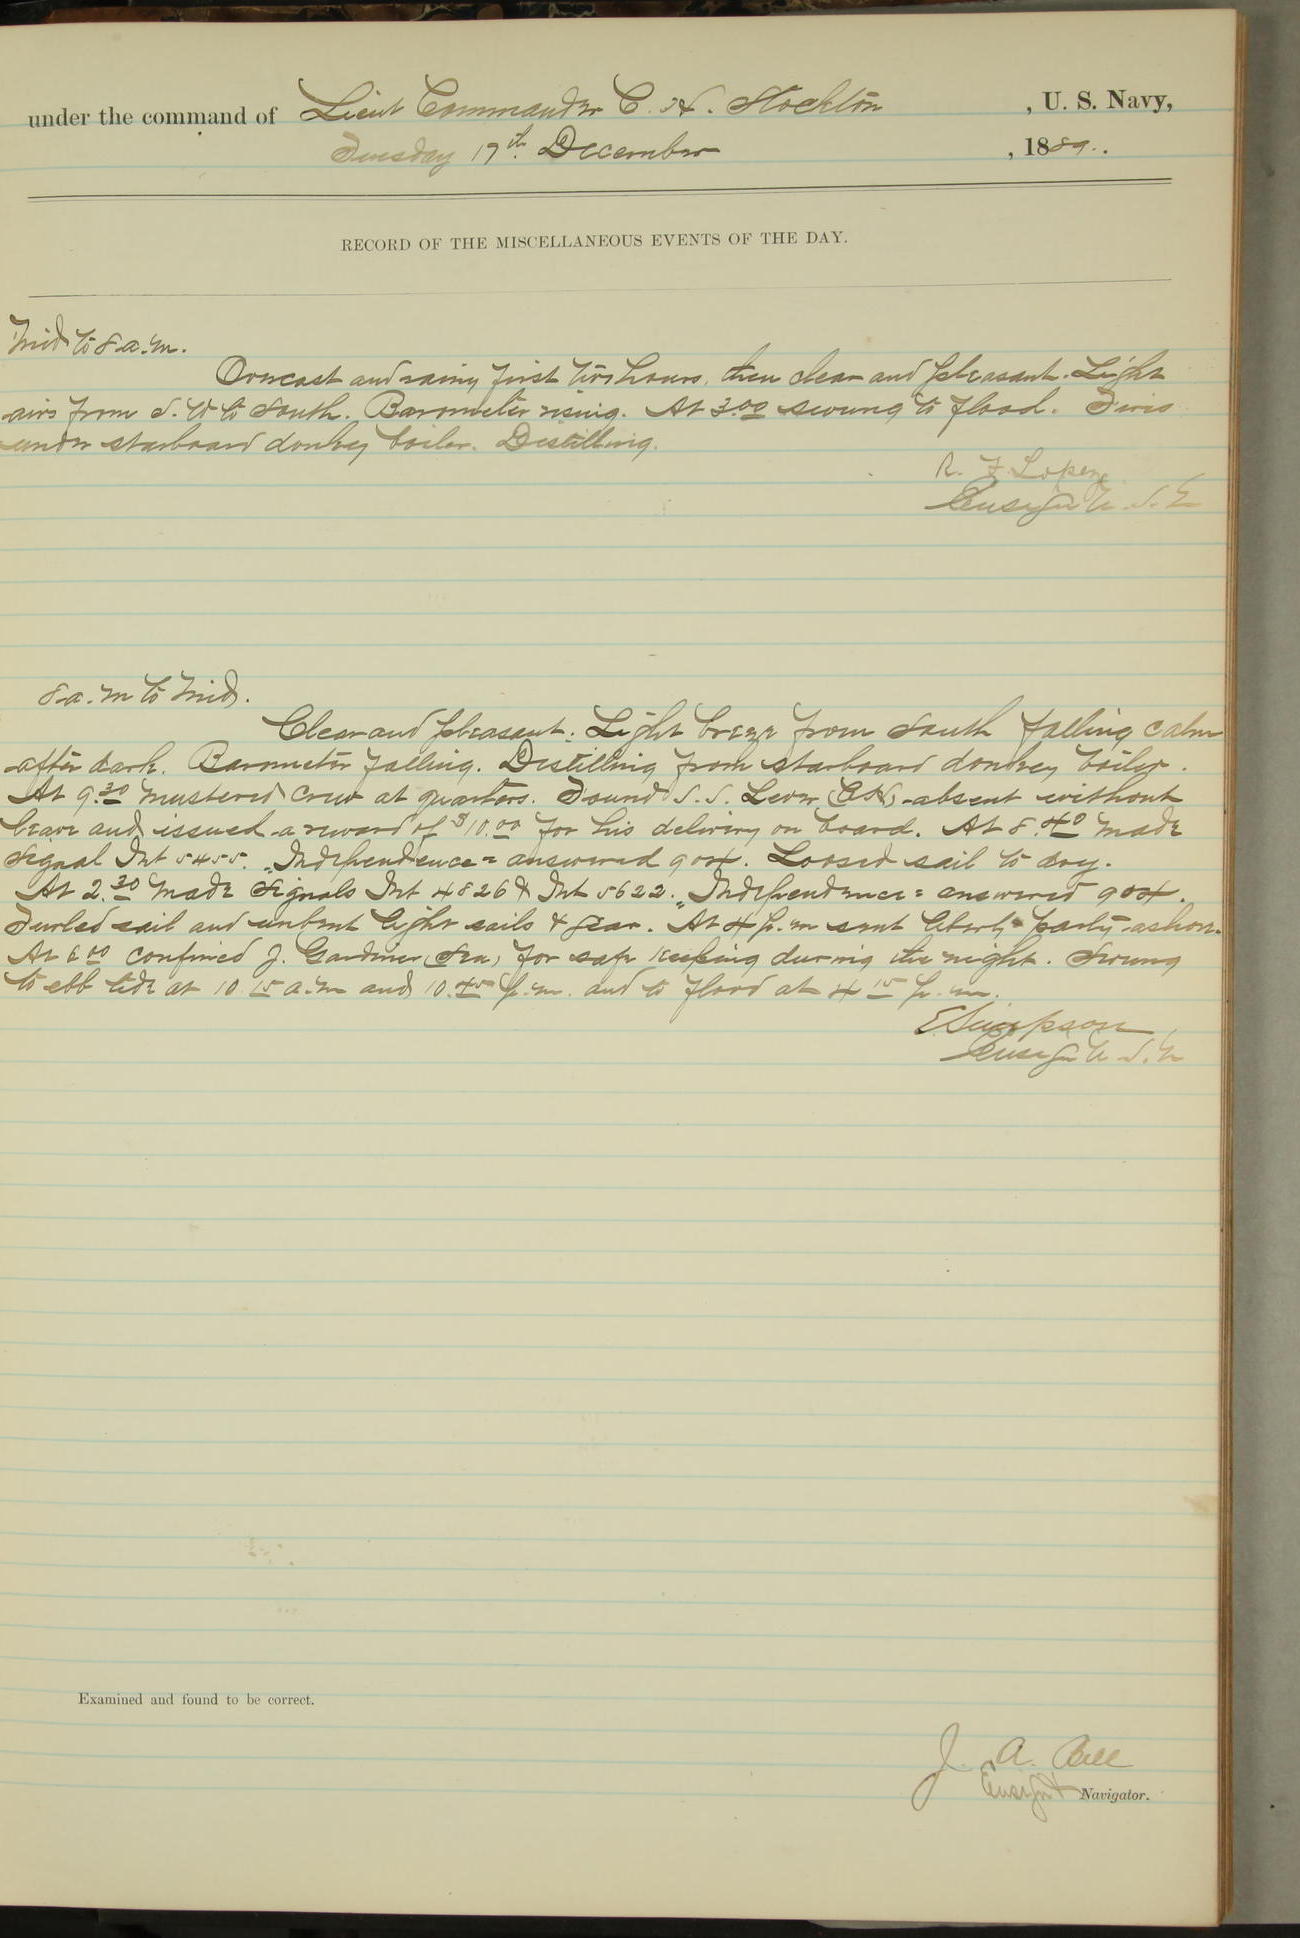 under the command of Lieut Commander C. H. Stockton, U. S. Navy,
Tuesday 17th December, 1889.
RECORD OF THE MISCELLANEOUS EVENTS OF THE DAY.
Mid to 8 a.m.
Overcast and rainy first two hours, then clear and pleasant. Light
airs from S. W to South. Barometer rising. At 3.00 swung to flood. Fires
under starboard donkey boiler. Distilling.
R. F. Lopez
Ensign U. S. N
8 a.m to Mid.
Clear and pleasant. Light breeze from South falling calm
after dark. Barometer falling. Distilling from starboard donkey boiler.
At 9.30 mustered crew at quarters. Found S. S. absent without
leave and issued a reward of $10.00 for his delivery on board. At 8.40 made
signal Int 5455. "Independence" answered 9004. Loosed sail to dry.
At 2.30 made signals Int 4826 & Int 5622. "Independence" answered 9004.
Furled sail and unbent light sails & gear. At 4 p.m sent liberty party ashore.
At 6.00 confined J. Gardiner (Sea) for safe keeping during the night. Swung
to ebb tide at 10.15 a.m and 10.45 p.m. and to flood at 4.15 p.m.
E Simpson,
Ensign U. S. N
Examined and found to be correct.
J. A. Bell
Ensign & Navigator.